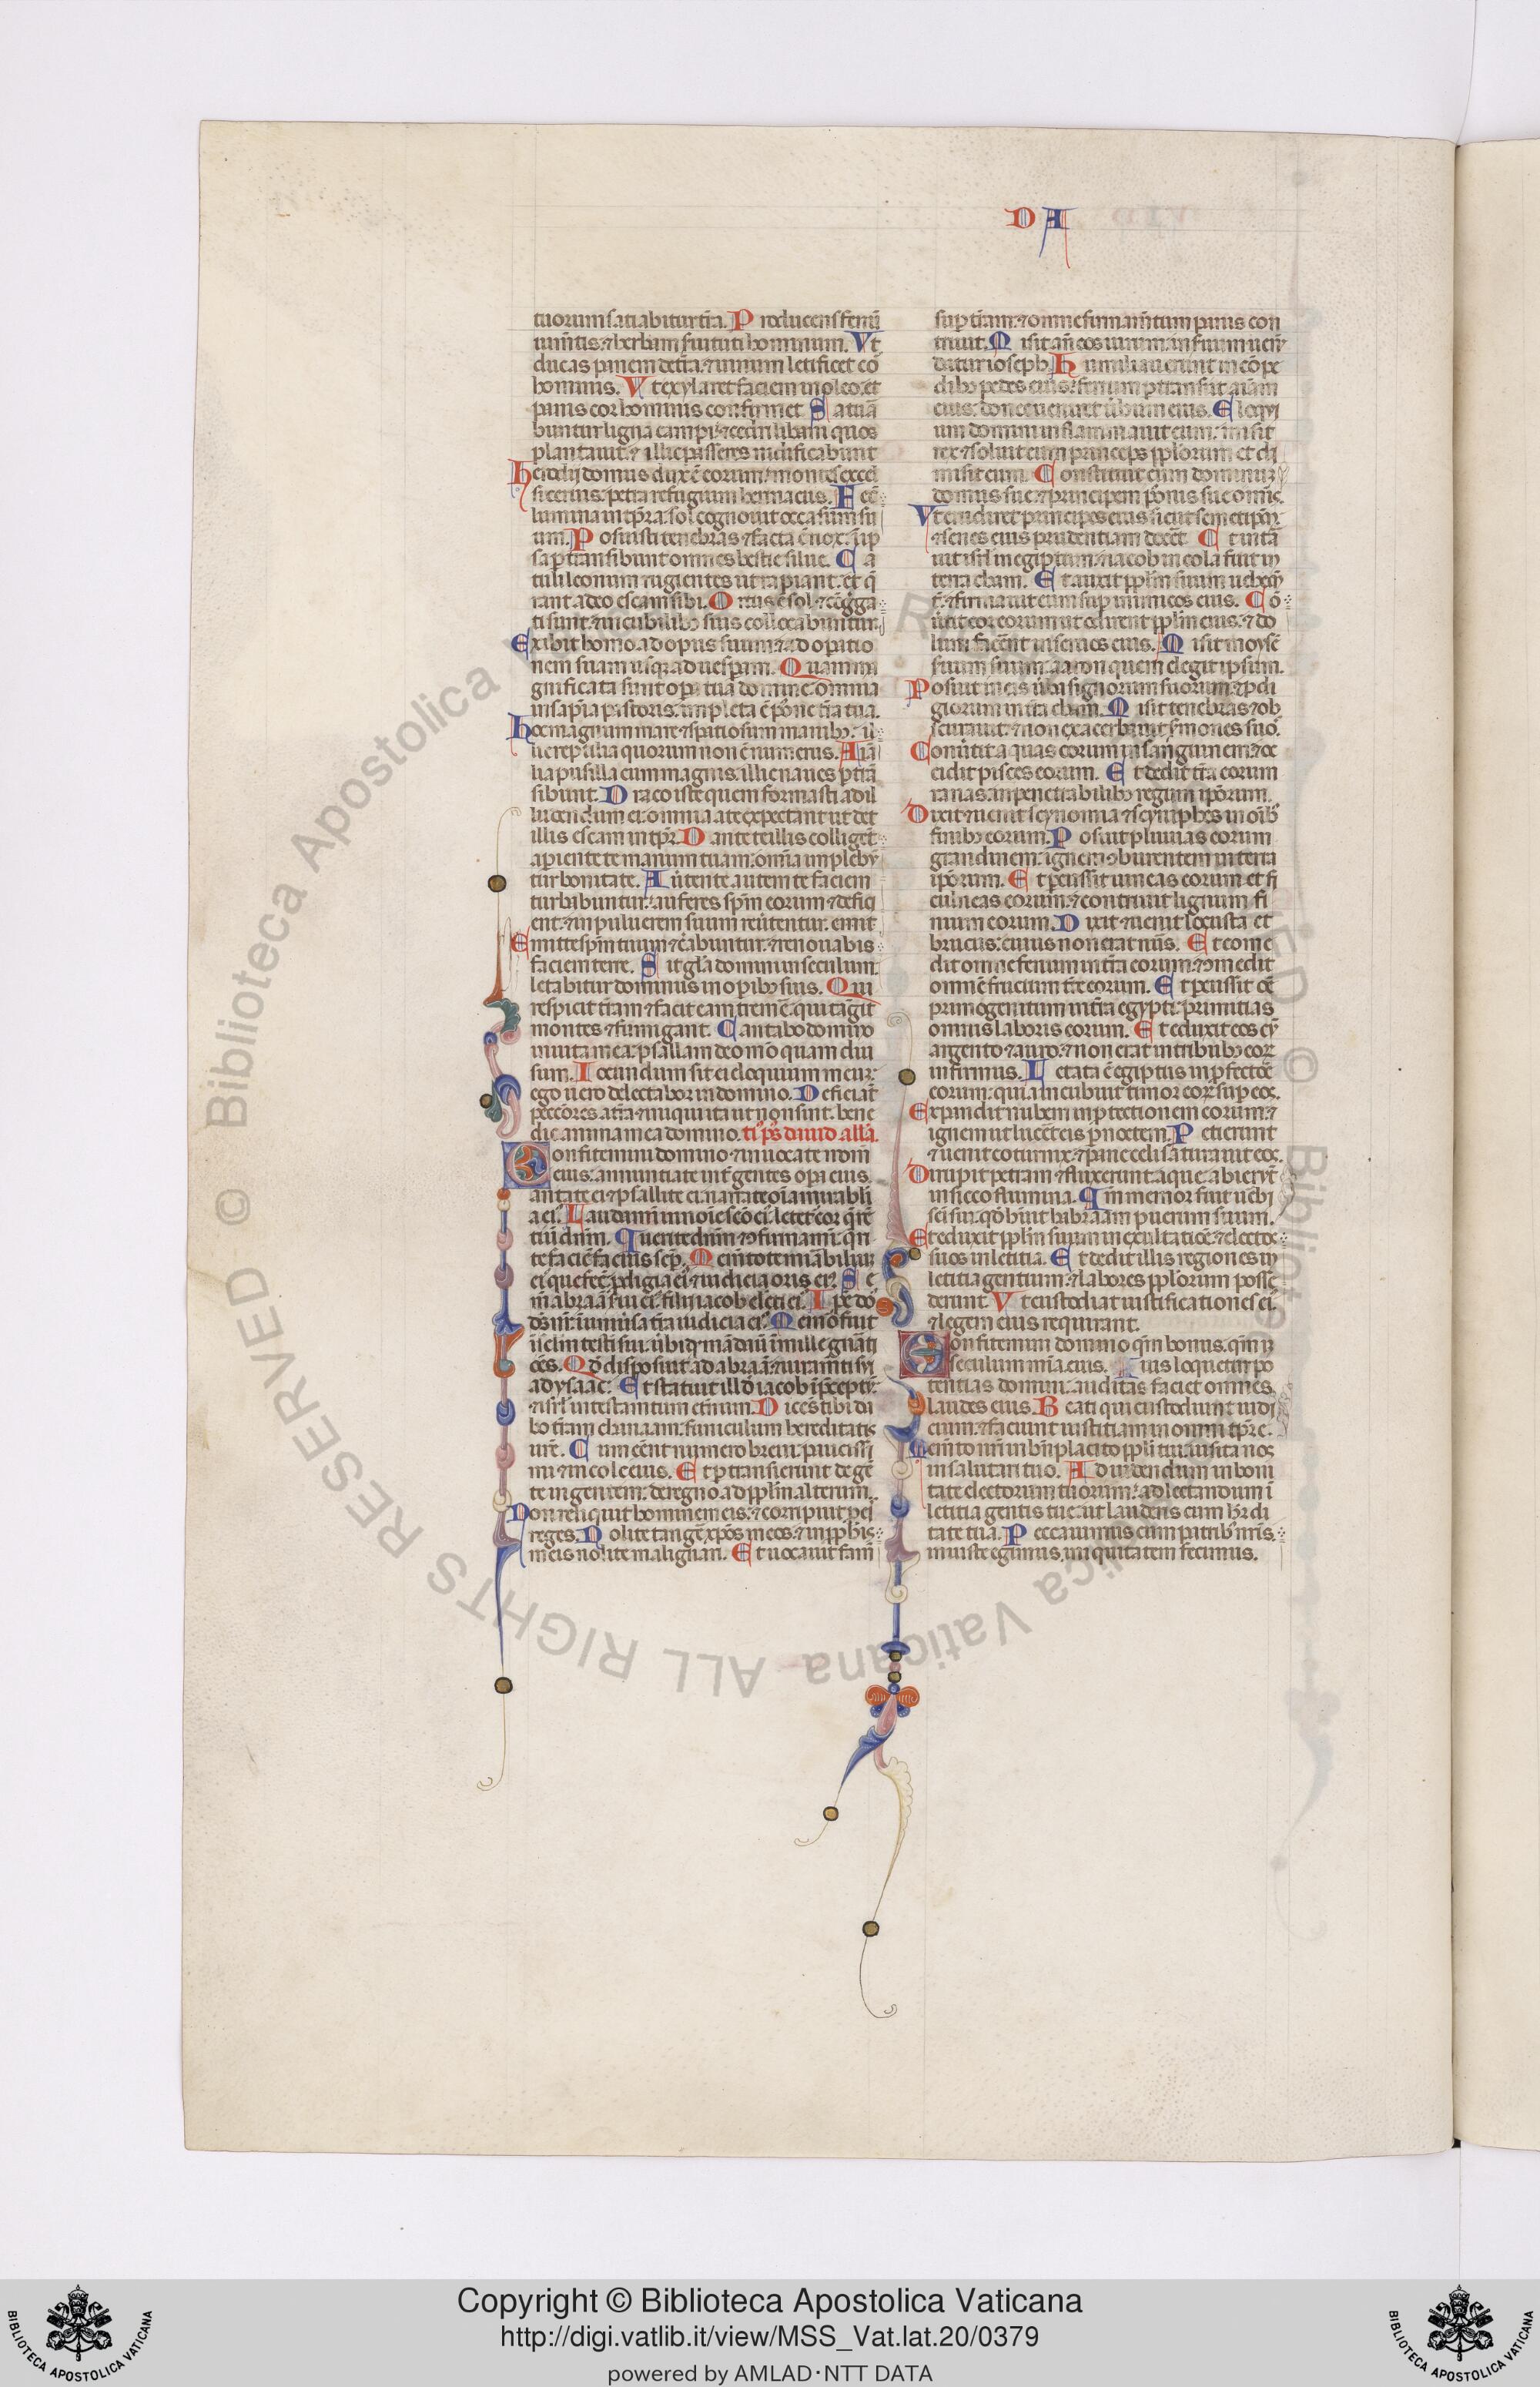 DA
tuorum satiabitur t̄ra. Producens fenū
ium̄tis. ⁊ herbam seruituti hominum. Vt
educas panem de t̄ra. ⁊ uinum letificet cor
hominis. Vt exylaret faciem in oleo. et
panis cor hominis confirmet. Satura
buntur ligna campi. ⁊ cedri libani quos
plantauit. ⁊ illic passeres nidificabunt
herodii domus dux ē eorum. montes excel
si ceruis. petra refugium herinaciis. Fecit
lunam in tp̄ra. sol cognouit occasum su
um. Posuisti tenebras ⁊ facta ē nox. in ip
sa ꝑtransibunt omnes bestie silue. Ca
tuli leonum rugientes ut rapiant. et q̄
rant a deo escam sibi. Ortus ē sol ⁊ ꝯgrega
ti sunt. ⁊ in cubilibꝫ suis collocabuntur.
Exibit homo ad opus suum. ⁊ ad opatio
nem suam usq; ad uesperam. Quam ma
gnificata sunt opa tua domine. omnia
in sapia fecisti. impleta ē possessione t̄ra tua.
hoc magnum mare ⁊ spatiosum manibꝫ. il
lic reptilia quorum non ē numerus. Aīa
lia pusilla cum magnis. illic naues ꝑtrā
sibunt. Draco iste quem formasti ad il
ludendum ei. omnia a te expectant ut det
illis escam in tp̄r. Dante te illis colligent.
aꝑiente te manum tuam. omīa implebū
tur bonitate. Auertente autem te faciem
turbabuntur. auferes sp̄m eorum ⁊ defici
ent. ⁊ in puluerem suum reuertentur. emit
Emitte sp̄m tuum ⁊ creabuntur. ⁊ renouabis
faciem terre. Sit glā domini in seculum.
letabitur dominus in opibꝫ suis. Qui
respicit t̄ram ⁊ facit eam tremē. qui tāgit
montes ⁊ fumigant. Cantabo domino
in uita mea. psallam deo meo quam diu
sum. Iocundum sit ei eloquium meum.
ego uero delectabor in domino. Deficiāt
peccōres a t̄ra ⁊ iniqui ita ut non sint. bene
dic anima mea domino. ti. ps. dauid. allā.
Confitemini domino ⁊ inuocate nomē
eius. annuntiate inter gentes opa eius.
Cantate ei ⁊ psallite ei. narrate oīa mirabili
a ei. Laudamini in noīe scō ei. letetur cor querē
tiū dn̄m. Querite dn̄m ⁊ ꝯfirmamini. queri
te faciē faciem eius semp. Mementote mirabiliū
ei. que fecit. prodigia ei. ⁊ iudicia oris ei. Se
men abraam serui ei. filii iacob electi ei. Ipse do
dominus deus nr. in uniuersa t̄ra iudicia ei. Memor fuit
in sclm testamti sui. uerbi quod mādauit in mille gnāti
ones. Qd disposuit ad abraam. ⁊ iuramti sui
ad ysaac. Et statuit illd iacob in preceptum.
⁊ isrl in testamtum etnum. Dicens tibi da
bo t̄ram chanaan. funiculum hereditatis
ure. Cum essent numero breui. paucissi
mi ⁊ incole eius. Et ꝑtransierunt de gen
te in gentem. de regno ad pplm alterum.
Non reliquit hominem eis. ⁊ corripuit ꝓ eis
reges. Nolite tangere xpos meos. ⁊ in pphis
meis nolite malignari. Et uocauit famē
suꝑ t̄ram. ⁊ omne firmamtum panis con
triuit. Misit ante eos uirum. in seruum uenū
datur ioseph. Humiliauerunt in ꝯpe
dibꝫ pedes eius. ferrum ꝑtransiit aīam
eius. donec ueniret uerbum eius. Eloqui
um domini inflammauit eum. misit
rex ⁊ soluit eum princeps pplorum et di
misit eum. Constituit eum dominum
domus sue. ⁊ principem omnis possessionis sue.
Vt erudiret principes eius sicut semetipm.
⁊ senes eius prudentiam doceret. Et intra
uit isrl in egiptum. ⁊ iacob incola fuit in
terra cham. Et auxit pplm suum uehemē
t. ⁊ firmauit eum suꝑ inimicos eius. Con
uertit cor eorum ut odirent pplm eius. ⁊ do
lum facerent in seruos eius. Misit moysē
seruum suum. aaron quem elegit ipsum.
Posuit in eis uerba signorum suorum. ⁊ prodi
giorum in t̄ra cham. Misit tenebras ⁊ ob
scurauit. ⁊ non exacerbauit sermones suos.
Conuertit aquas eorum in sanguinem. ⁊ oc
cidit pisces eorum. Et dedit t̄ra eorum
ranas. in penetrabilibꝫ regum ipsorum.
Dixit ⁊ uenit scynomia ⁊ scyniphes in oībꝫ
finibꝫ eorum. Posuit pluuias eorum
grandinem. ignem ⁊burentem in terra
ipsorum. Et ꝑcussit uineas eorum et fi
culneas eorum. ⁊ contriuit lignum fi
nium eorum. Dixit ⁊ uenit locusta et
brucus. cuius non erat nūs. Et come
dit omne fenum in t̄ra eorum. ⁊ comedit
omnē fructum t̄re eorum. Et ꝑcussit oē
primogenitum in t̄ra egypti. primitias
omnis laboris eorum. Et eduxit eos cū
argento ⁊ auro. ⁊ non erat in tribubꝫ eoꝝ
infirmus. Letata ē egiptus in ꝓfectōe
eorum. quia incubuit timor eoꝝ suꝑ eos.
Expandit nubem in ꝓtectionem eorum. ⁊
ignem ut luceret eis ꝑ noctem. Petierunt
⁊ uenit coturnix. ⁊ pane celi saturauit eos.
Dirupit petram ⁊ fluxerunt aque. abierūt
in sicco flumina. Qm̄ memor fuit uerbi
sci sui. qd habuit ad abraam puerum suum.
Et eduxit pplm suum in exultatiōe. ⁊ electos
suos in letitia. Et dedit illis regiones in
letitia gentium. ⁊ labores pplorum posse
derunt. Vt custodiat iustificationes ei.
⁊ legem eius requirant.
Confitemini domino qm̄ bonus. qm̄ in
seculum mīa eius. Quis loquetur po
tentias domini. auditas faciet omnes
laudes eius. Beati qui custodiunt iudi
cium. ⁊ faciunt iustitiam in omni tp̄re.
Memto nri in bn̄placito ppli tui. uisita nos
in salutari tuo. Ad uidendum in boni
tate electorum tuorum. ad letandum in
letitia gentis tue. ut lauderis cum her̄di
tate tua. Peccauimus cum patribꝫ nr̄is.
iniuste egimus. iniquitatem fecimus.
Copyright © Biblioteca Apostolica Vaticana
http://digi.vatlib.it/view/MSS_Vat.lat.20/0379
powered by AMLAD・NTT DATA
BIBLIOTECA APOSTOLICA VATICANA
BIBLIOTECA APOSTOLICA VATICANA
© Biblioteca Apostolica Vaticana ALL RIGHTS RESERVED